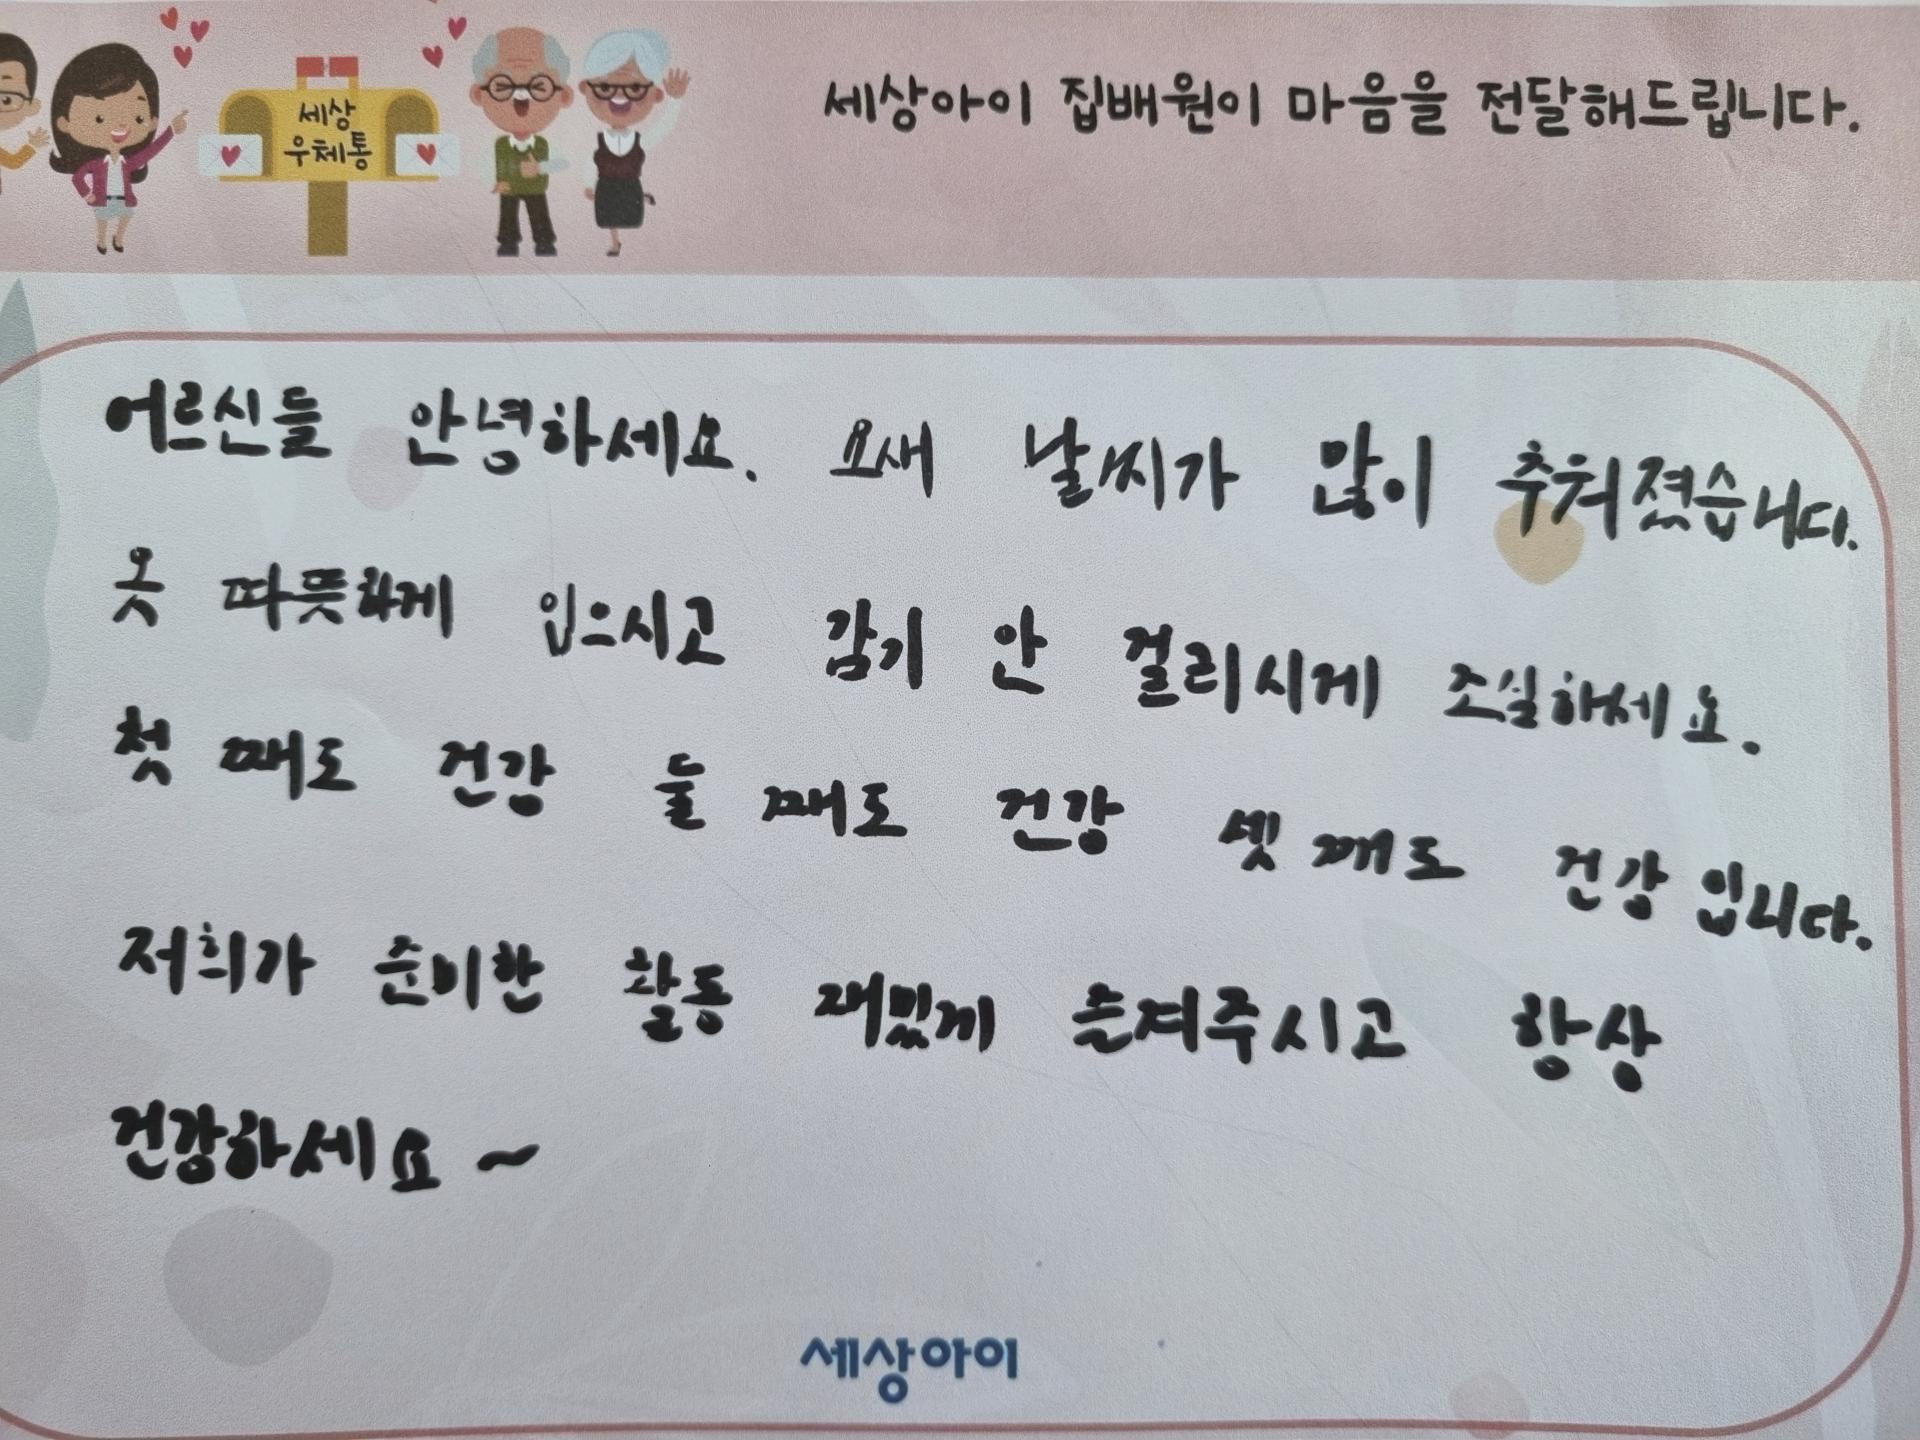 세상아이 집배원이 마음을 전달해드립니다.
세상
우체통
어르신들 안녕하세요. 요새 날씨가 많이 추워졌습니다.
옷 따뜻하게 입으시고 감기 안 걸리시게 조심하세요.
첫 째도 건강 둘 째도 건강 셋 째도 건강 입니다.
저희가 준비한 활동 재밌게 즐겨주시고 항상
건강하세요 ~
세상아이